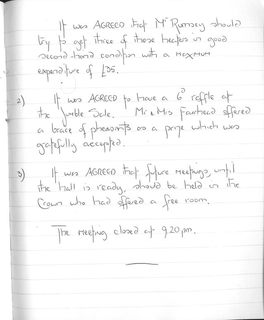 It was AGREED that Mr Rumsey should
try to get three of these heaters in good
second-hand condition with a maximum
expenditure of
2) It was AGREED to have a 6d raffle at
the Jumble Sale. Mr & Mrs offered
a brace of pheasants as a prize which was
gratefully accepted.
3) It was AGREED that future meetings, until
the hall is ready, should be held in the
Crown who had offered a free room.
The meeting closed at 9.20pm.